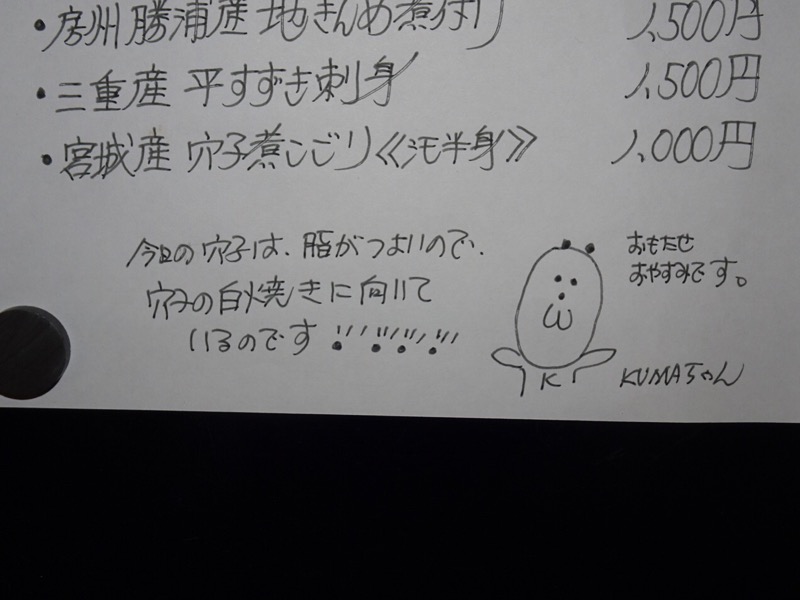 ・房州勝浦産 地きんめ煮付け 1,500円
・三重産 平すずき刺身 1,500円
・宮城産 穴子煮こごり《半身》 1,000円
今日の穴子は、脂がつよいので、
穴子の白焼きに向いて
いるのです
おもたせ
おやすみです。
K
KUMAちゃん